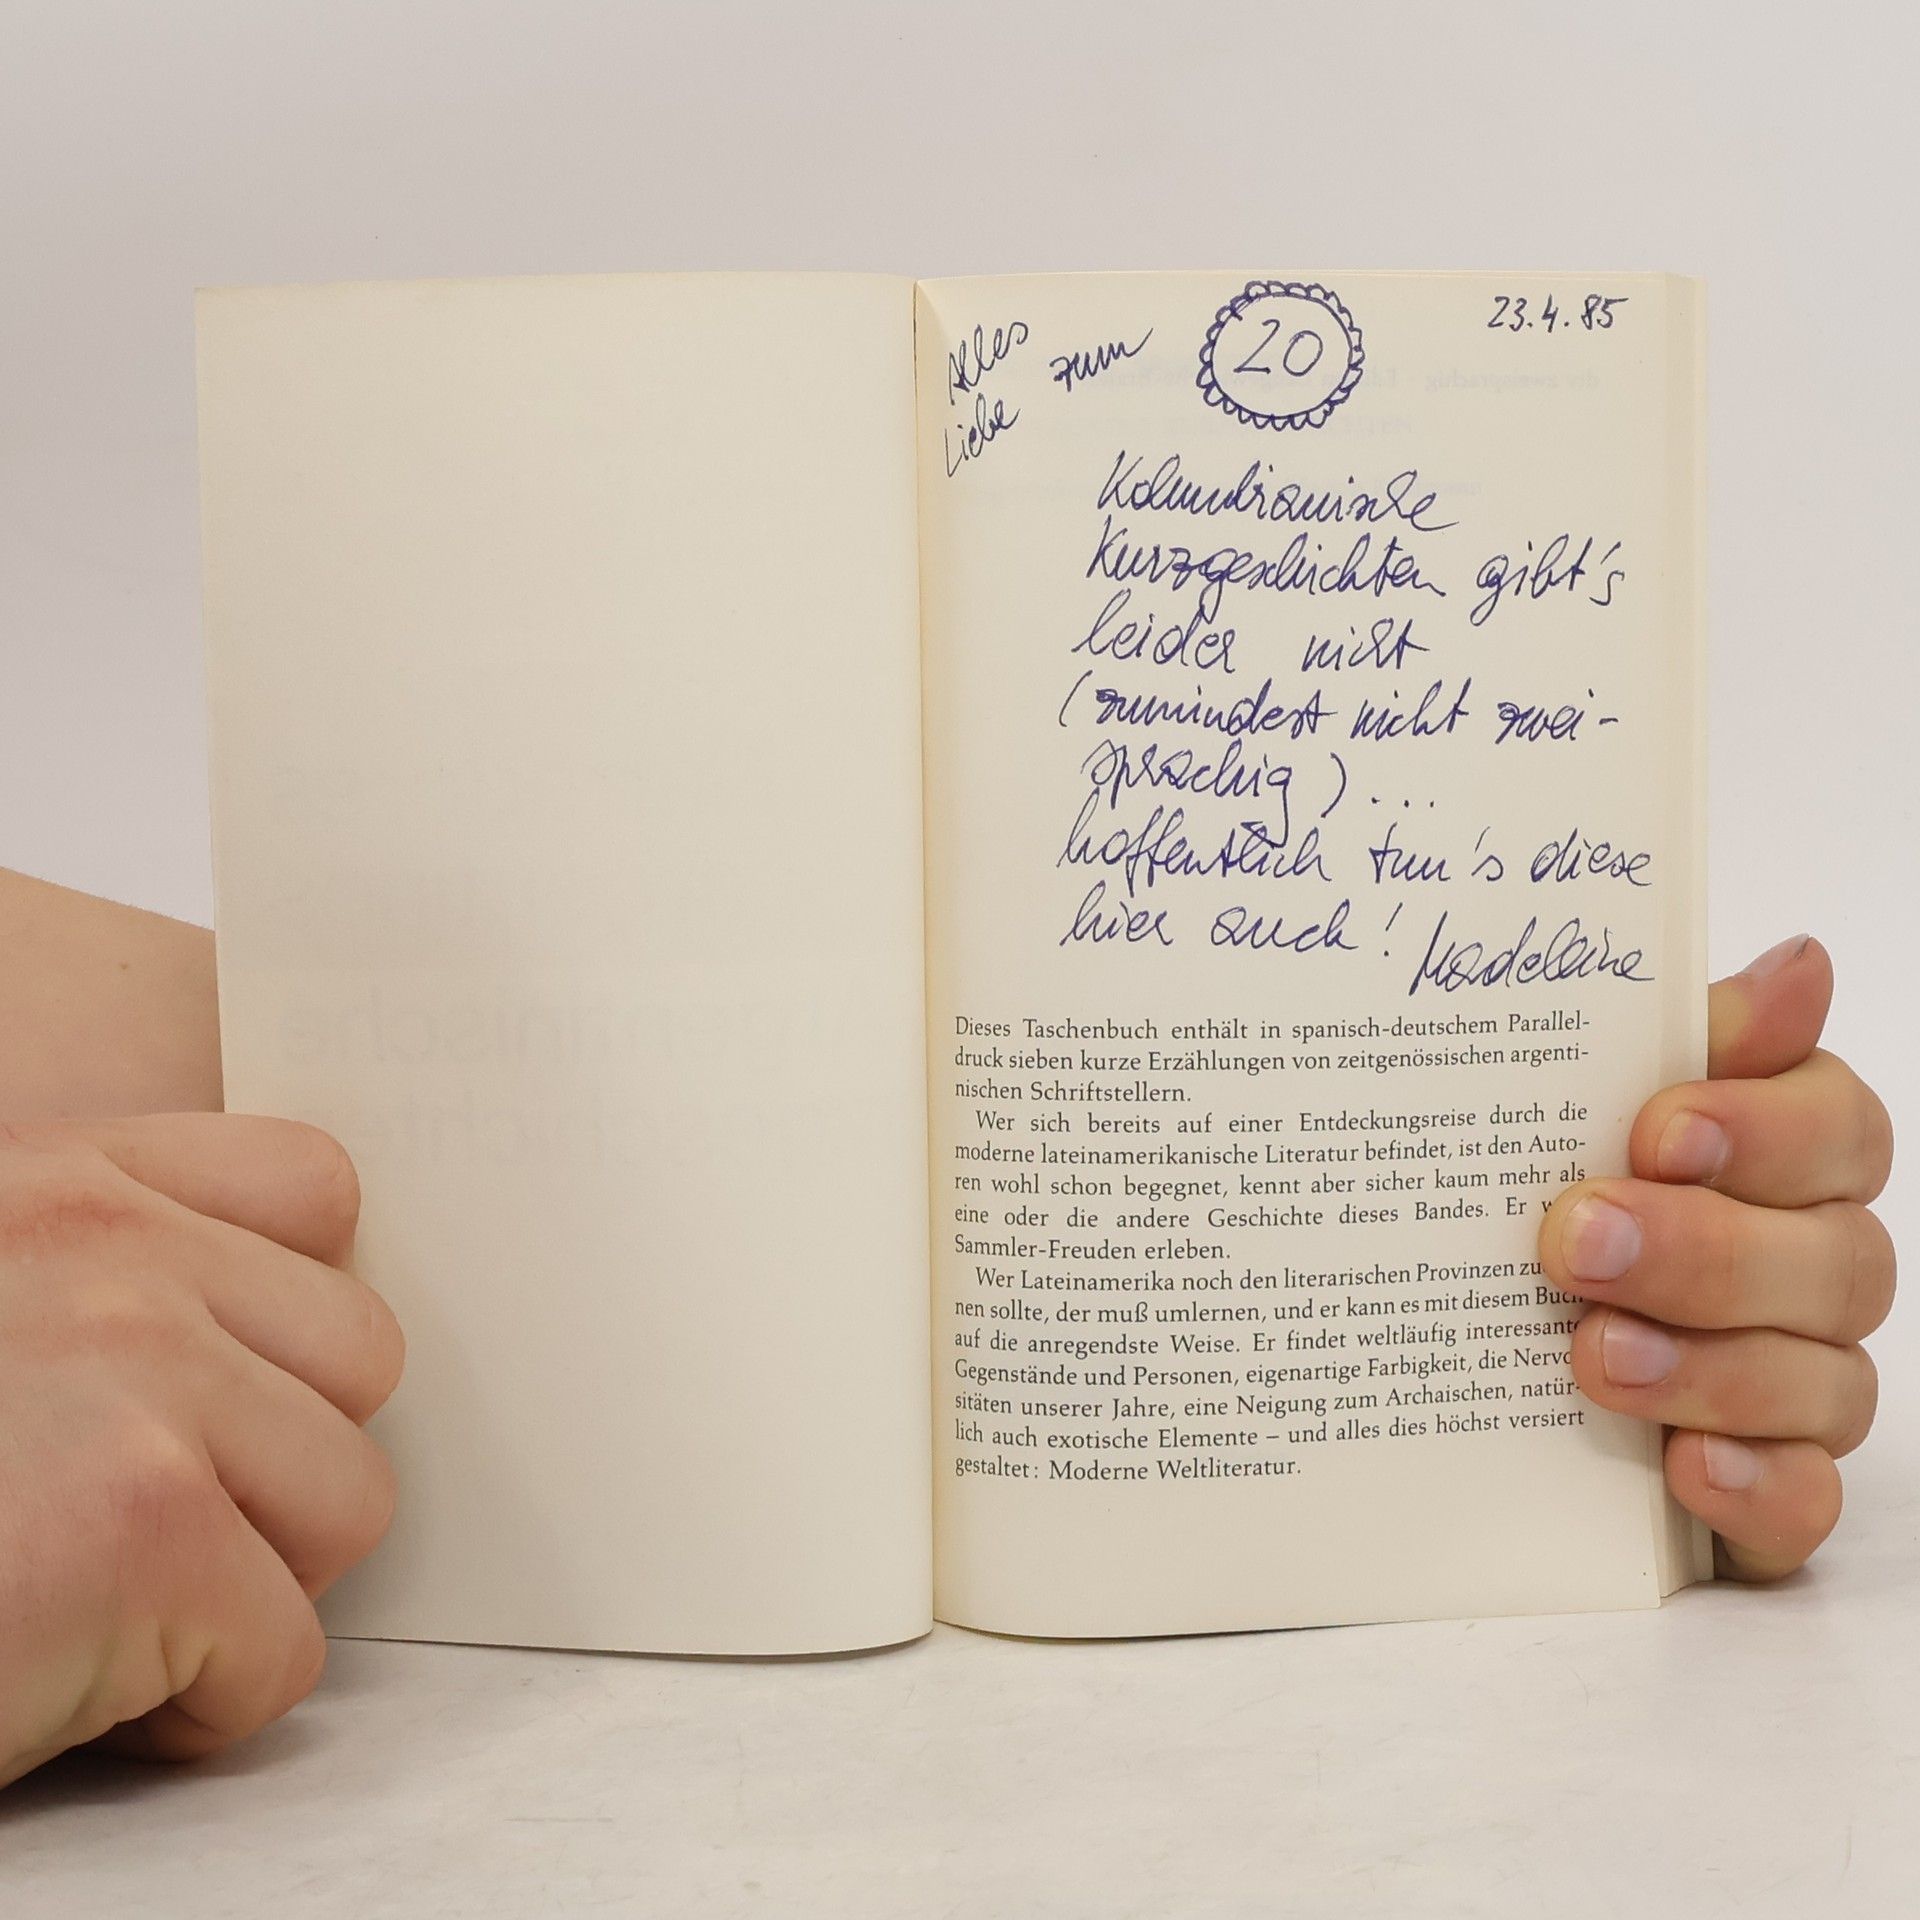 Alles
Liebe
zum
20
23.4.85
Kolumbianische
Kurzgeschichten gibt's
leider nicht
(zumindest nicht zwei-
sprachig) ...
hoffentlich tun's diese
hier auch!
Madeleine
Dieses Taschenbuch enthält in spanisch-deutschem Parallel-
druck sieben kurze Erzählungen von zeitgenössischen argenti-
nischen Schriftstellern.
Wer sich bereits auf einer Entdeckungsreise durch die
moderne lateinamerikanische Literatur befindet, ist den Auto-
ren wohl schon begegnet, kennt aber sicher kaum mehr als
eine oder die andere Geschichte dieses Bandes. Er
Sammler-Freuden erleben.
Wer Lateinamerika noch den literarischen Provinzen
nen sollte, der muß umlernen, und er kann es mit diesem Buch
auf die anregendste Weise. Er findet weltläufig interessante
Gegenstände und Personen, eigenartige Farbigkeit, die Nervo-
sitäten unserer Jahre, eine Neigung zum Archaischen, natür-
lich auch exotische Elemente – und alles dies höchst versiert
gestaltet: Moderne Weltliteratur.